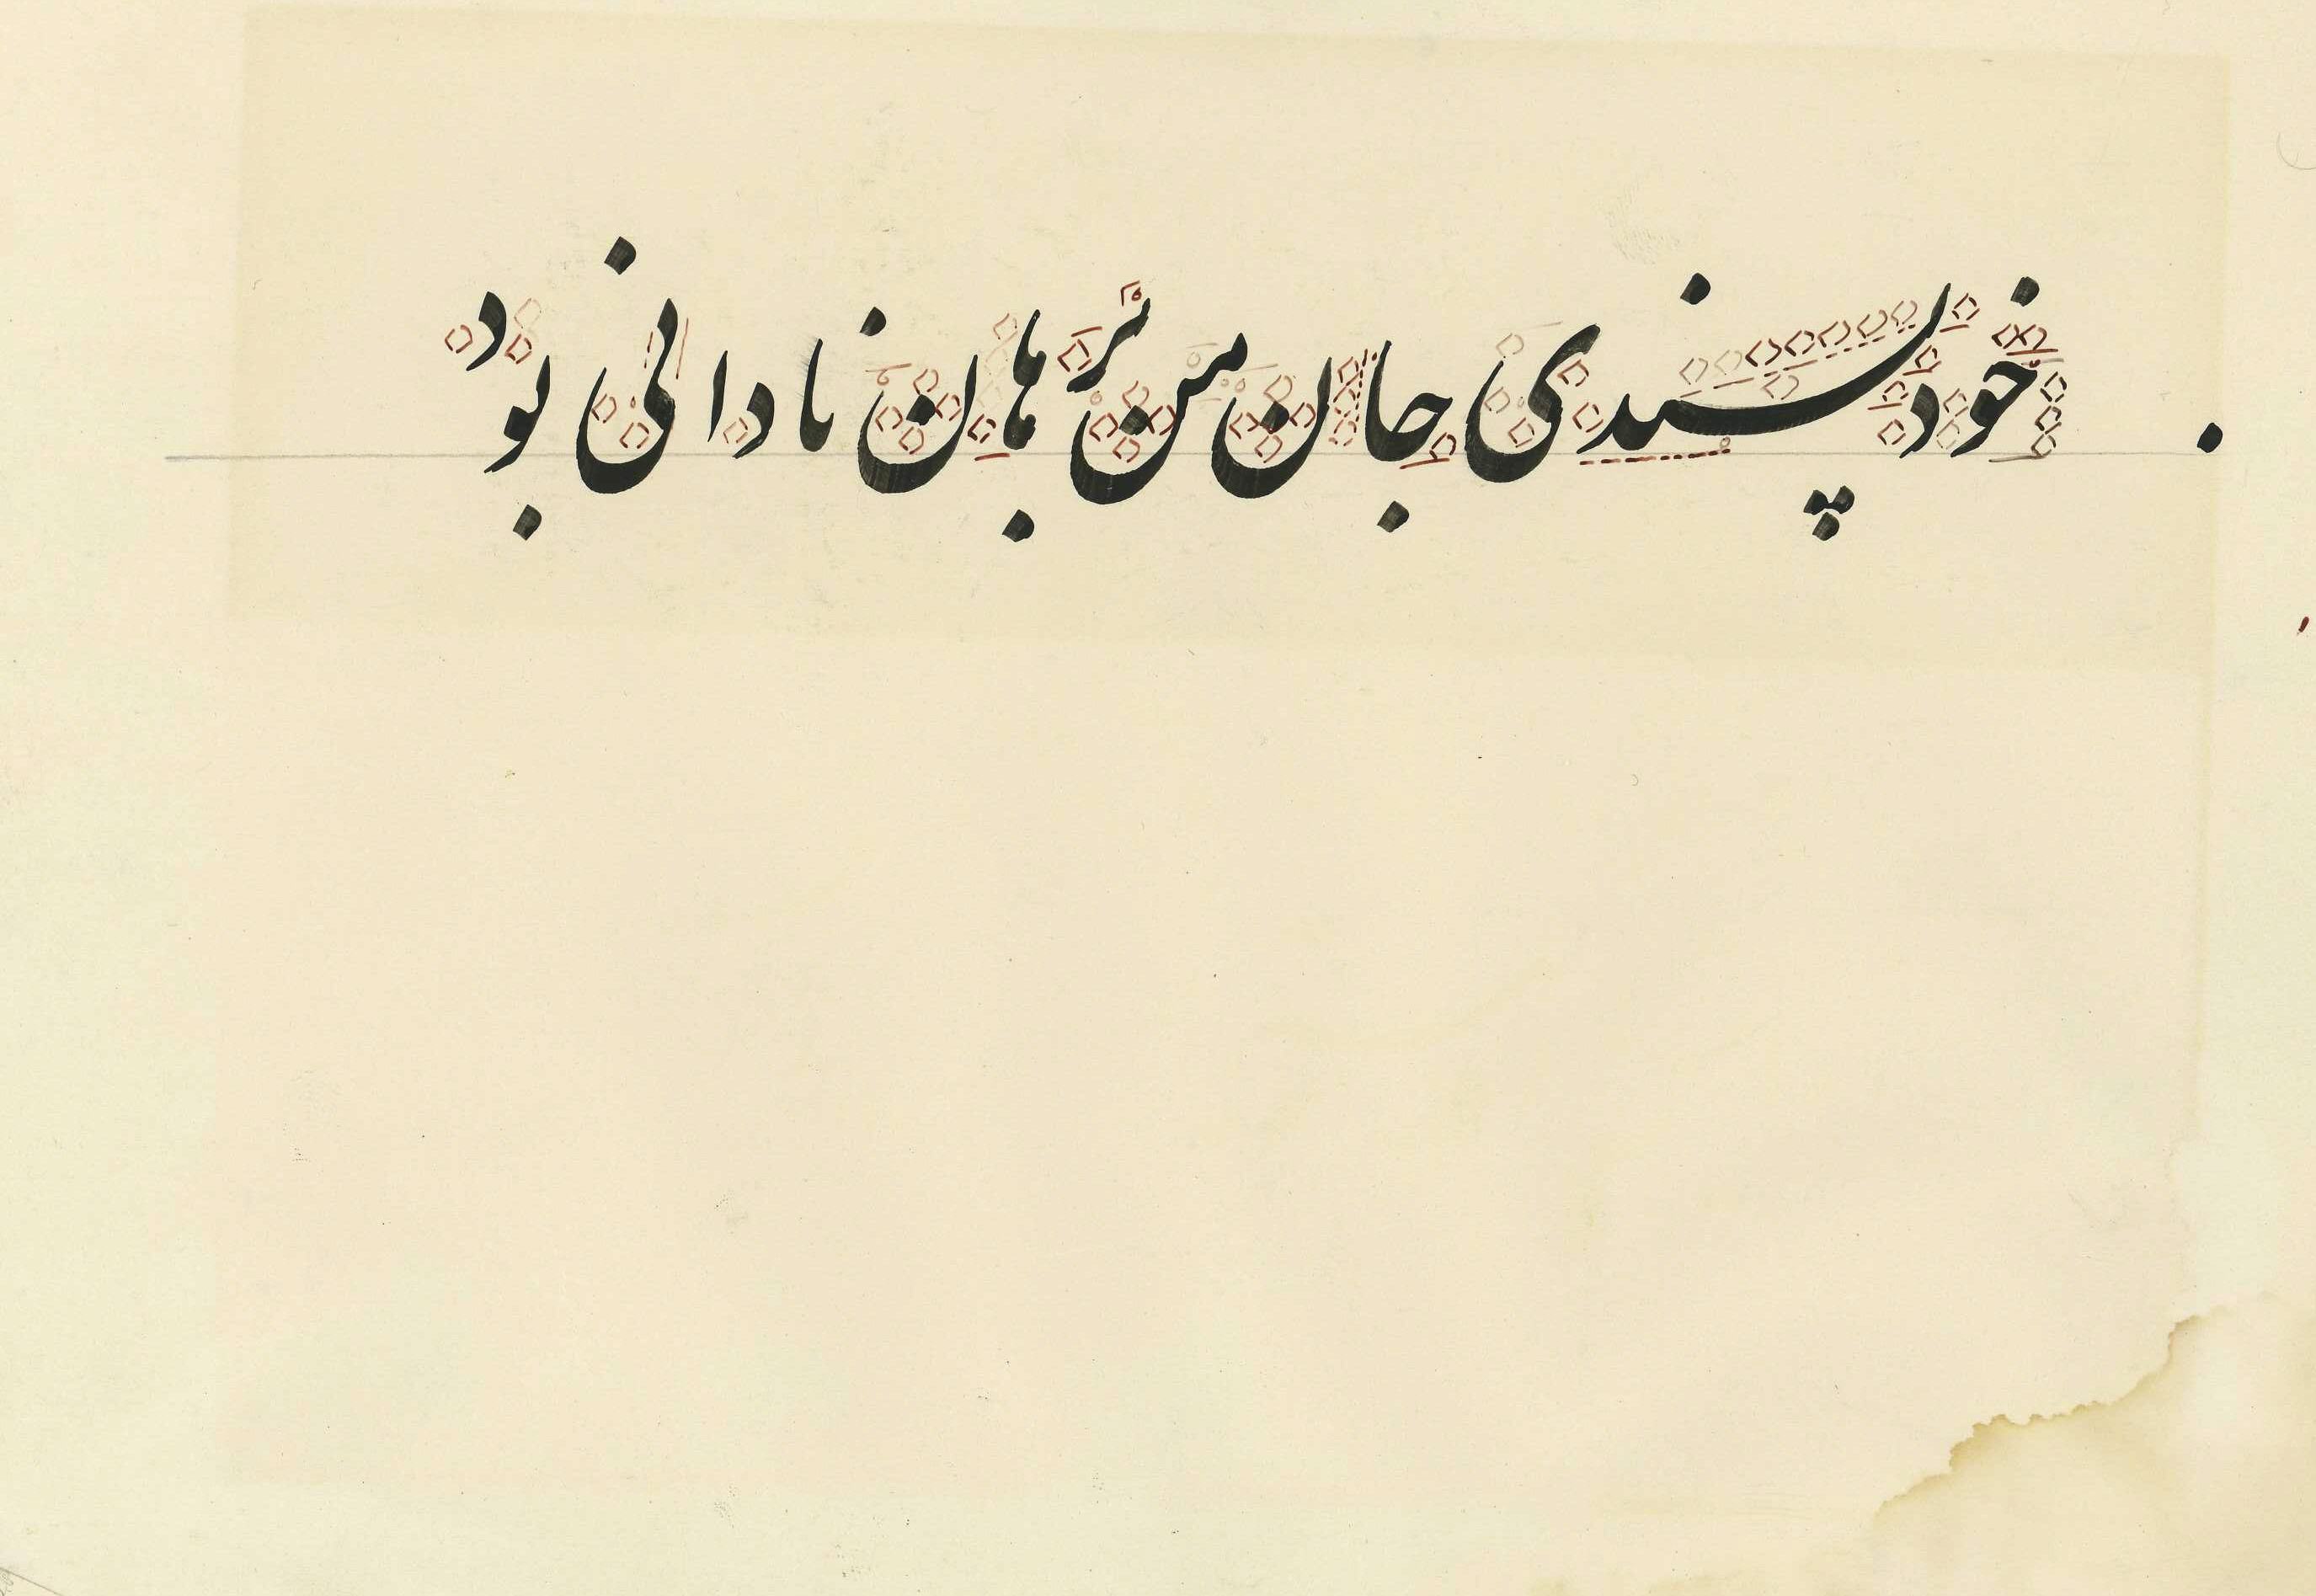 خودپسندی جان من برهان نادانی بود